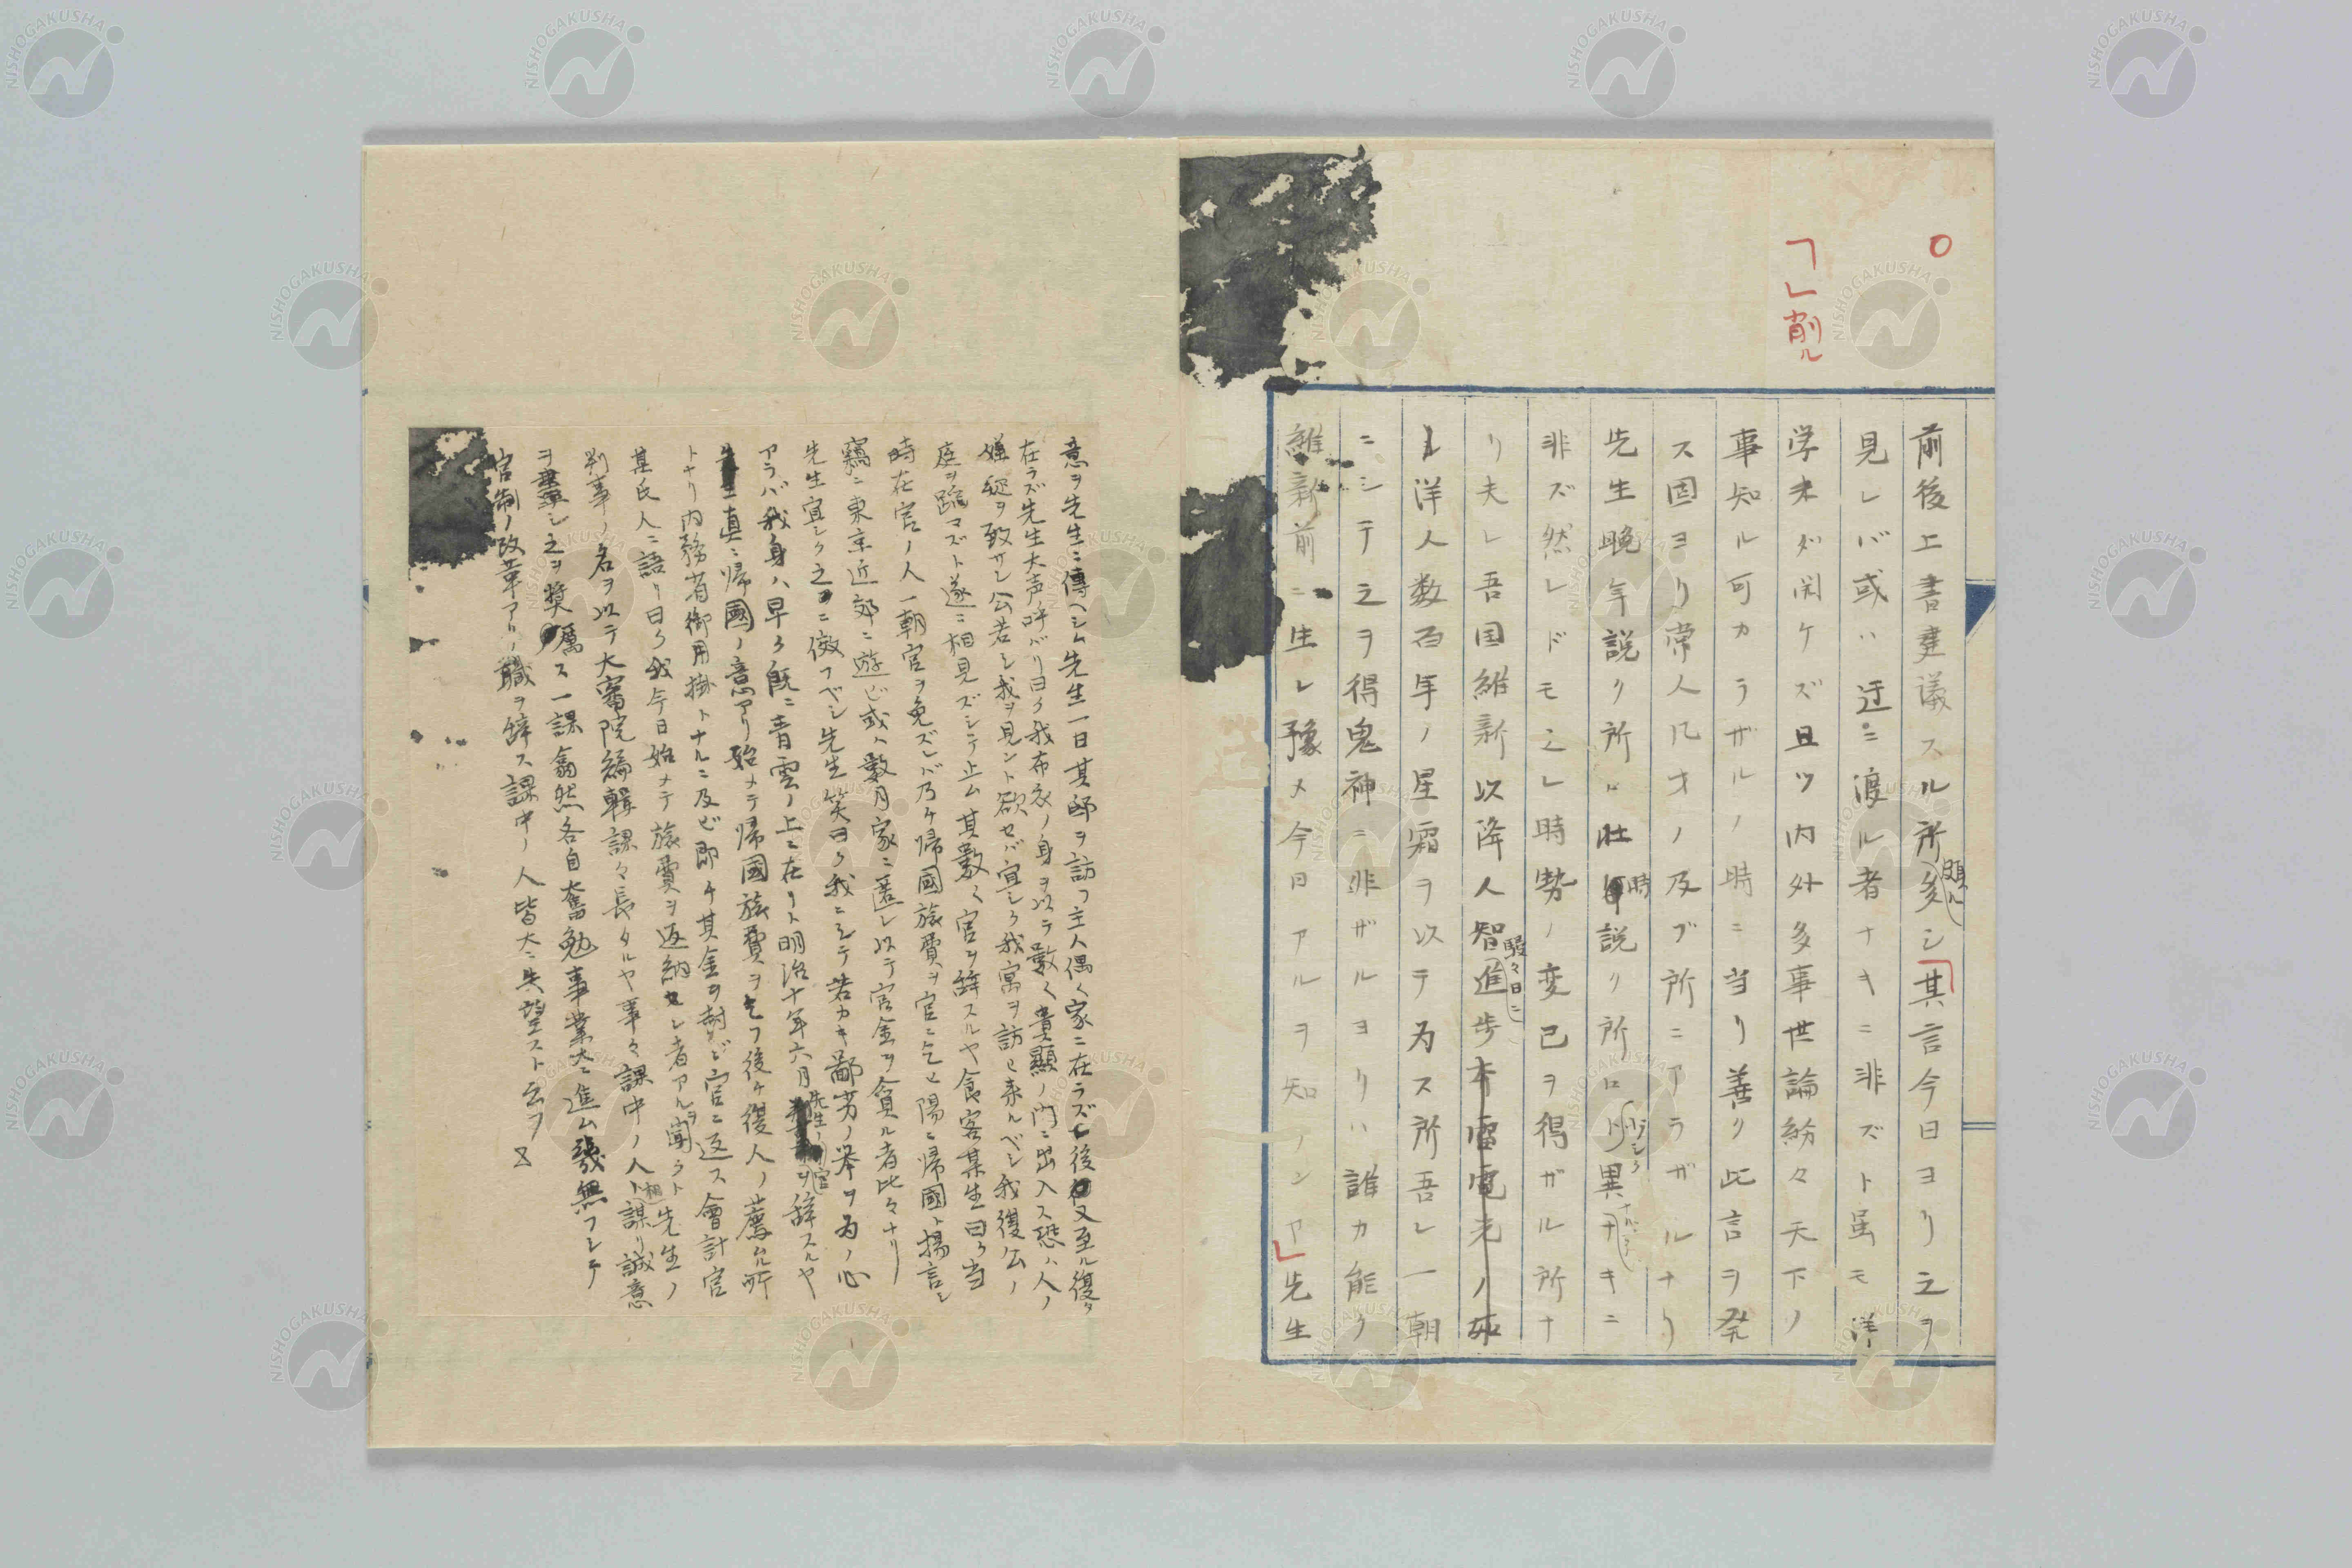 ○
「」削ル
前後上書建議スル所頗ル多シ其言今日ヨリ之ヲ
見レバ或ハ迂ニ渡ル者ナキニ非ズト虽モ洋
学未ダ開ケズ且ツ内外多事世論紛々天下ノ
事知ル可カラザルノ時ニ当リ善ク此言ヲ発
ス固ヨリ常人凡才ノ及ブ所ニアラザルナリ
先生晩年説ク所ロ壮時説ク所ロ異ナキニ
非ズ然レドモ之レ時勢ノ変已ヲ得ザル所ナ
リ夫レ吾国維新以降人智駸々日ニ進歩
洋人数百年ノ星霜ヲ以テ為ス所吾レ一朝
ニシテ之ヲ得鬼神ニ非ザルヨリハ誰カ能ク
維新前ニ生レ豫メ今日アルヲ知ランヤ先生
意ヲ先生ニ傳ヘシム先生一日其邸ヲ訪フ主人偶く家ニ在ラズ後又至ル復タ
在ラズ先生大声呼バリ曰ク我布衣ノ身ヲ以テ數く貴顯ノ門ニ出入ス恐ハ人ノ
嫌疑ヲ致サン公若シ我ヲ見ント欲セバ宜シク我寓ヲ訪ヒ来ルベシ我復公ノ
庭ヲ踏マズト遂ニ相見ズシテ止ム其數く官ヲ辞スルヤ食客某生曰ク当
時在官ノ人一朝官ヲ免ズレバ乃チ帰國旅費ヲ官ニ乞ヒ陽ニ帰國ト揚言シ
竊ニ東京近郊ニ遊ビ或ハ數月家ニ匿レ以テ官金ヲ貪ル者比々ナリ
先生宜シク之ニ倣フベシ先生笑ヲク我ニシテ若カキ鄙劣ノ挙ヲ為ノ心
アラバ我身ハ早ク既ニ青雲ノ上ニ在リト明治十年六月先生ノ官ヲ辞スルヤ
真ニ帰國ノ意アリ始メテ帰國旅費ヲ乞フ後チ復人ノ薦ムル所
トナリ内務省御用掛トナルニ及ビ即チ其金ヲ封ジ官ニ返ス會計官
某氏人ニ語リ曰ク我今日始メテ旅費ヲ返納セシ者アルヲ聞クト先生ノ
判事ノ名ヲ以テ大審院編輯課々長タルヤ事々課中ノ人ト相謀リ誠意
ヲ盡シ之ヲ奬厲ス一課翕然各自奮勉事業大ニ進ム幾無フシテ
官制ノ改革アリ職ヲ辞ス課中ノ人皆大ニ失望スト云フ
NISHOGAKUSHA